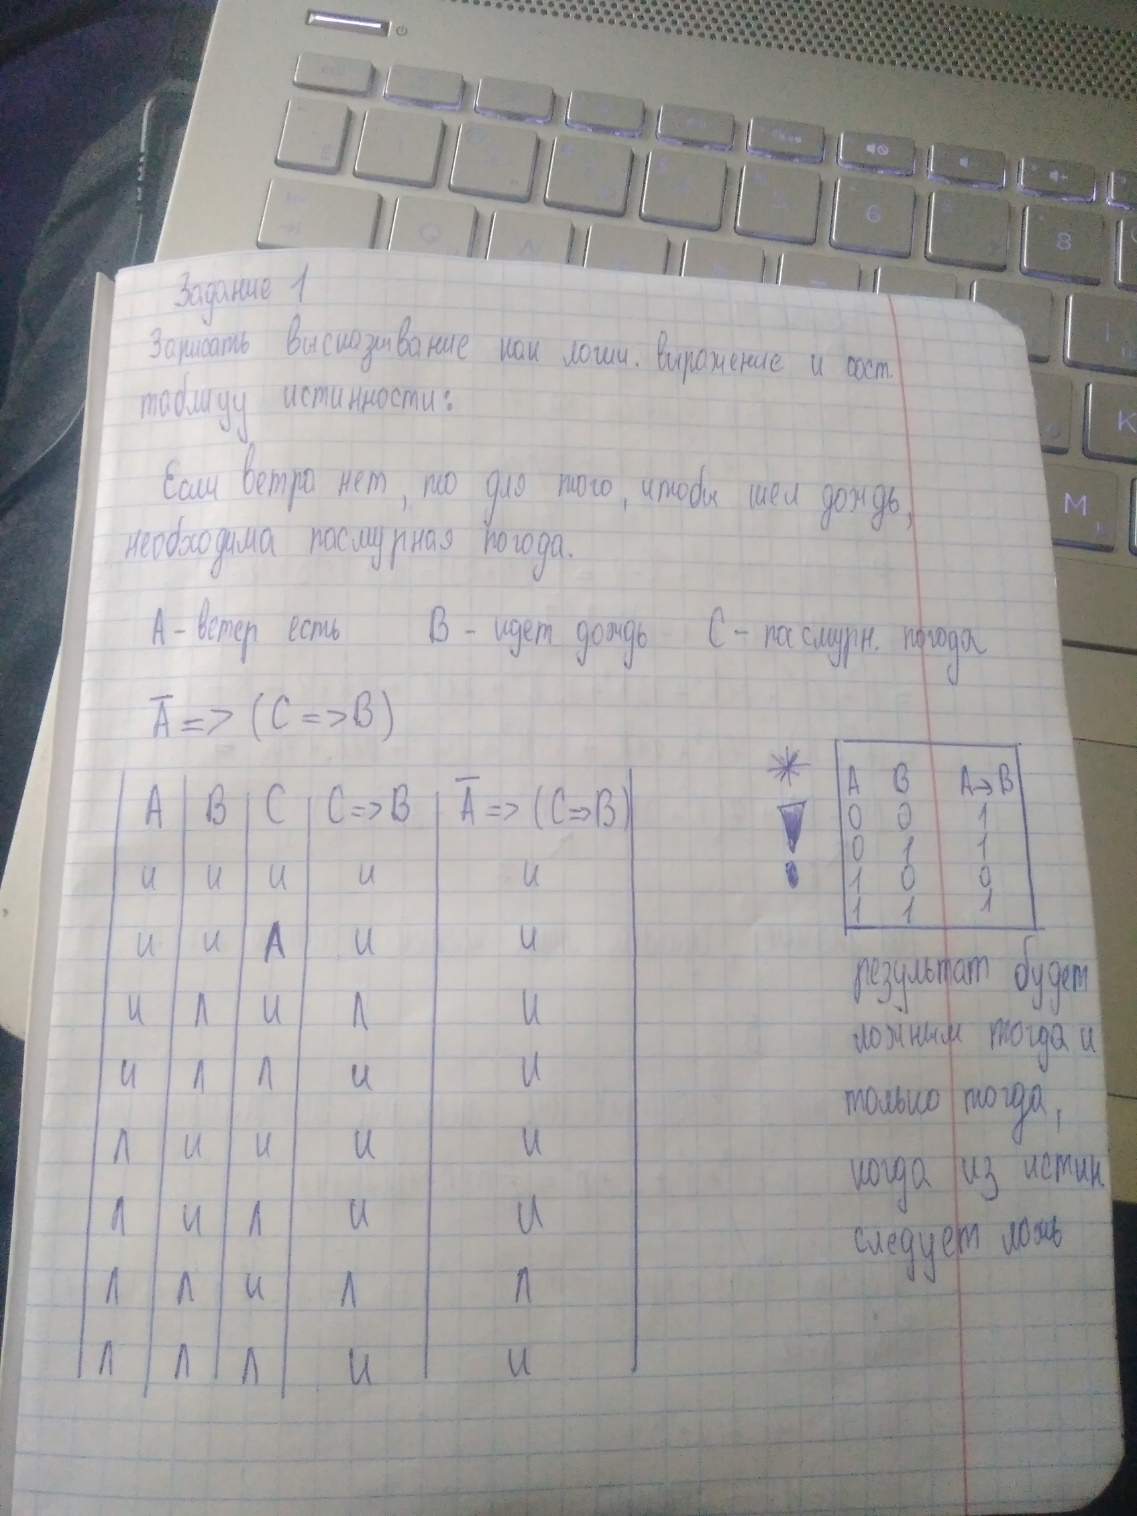 Задание 1
Записать высказывание как логич. выражение и сост.
таблицу истинности:
Если ветра нет, то для того, чтобы шел дождь,
необходима пасмурная погода.
A - ветер есть B - идет дождь C - пасмурн. погода
A̅ => (C => B)
A B C C => B A̅ => (C => B)
и и и и и
и и Л и и
и л и л и
и л л и и
л и и и и
л и л и и
л л и л л
л л л и и
*
!
A B A→B
0 0 1
0 1 1
1 0 0
1 1 1
результат будет
ложным тогда и
только тогда,
когда из истин.
следует ложь
6
8
K
M